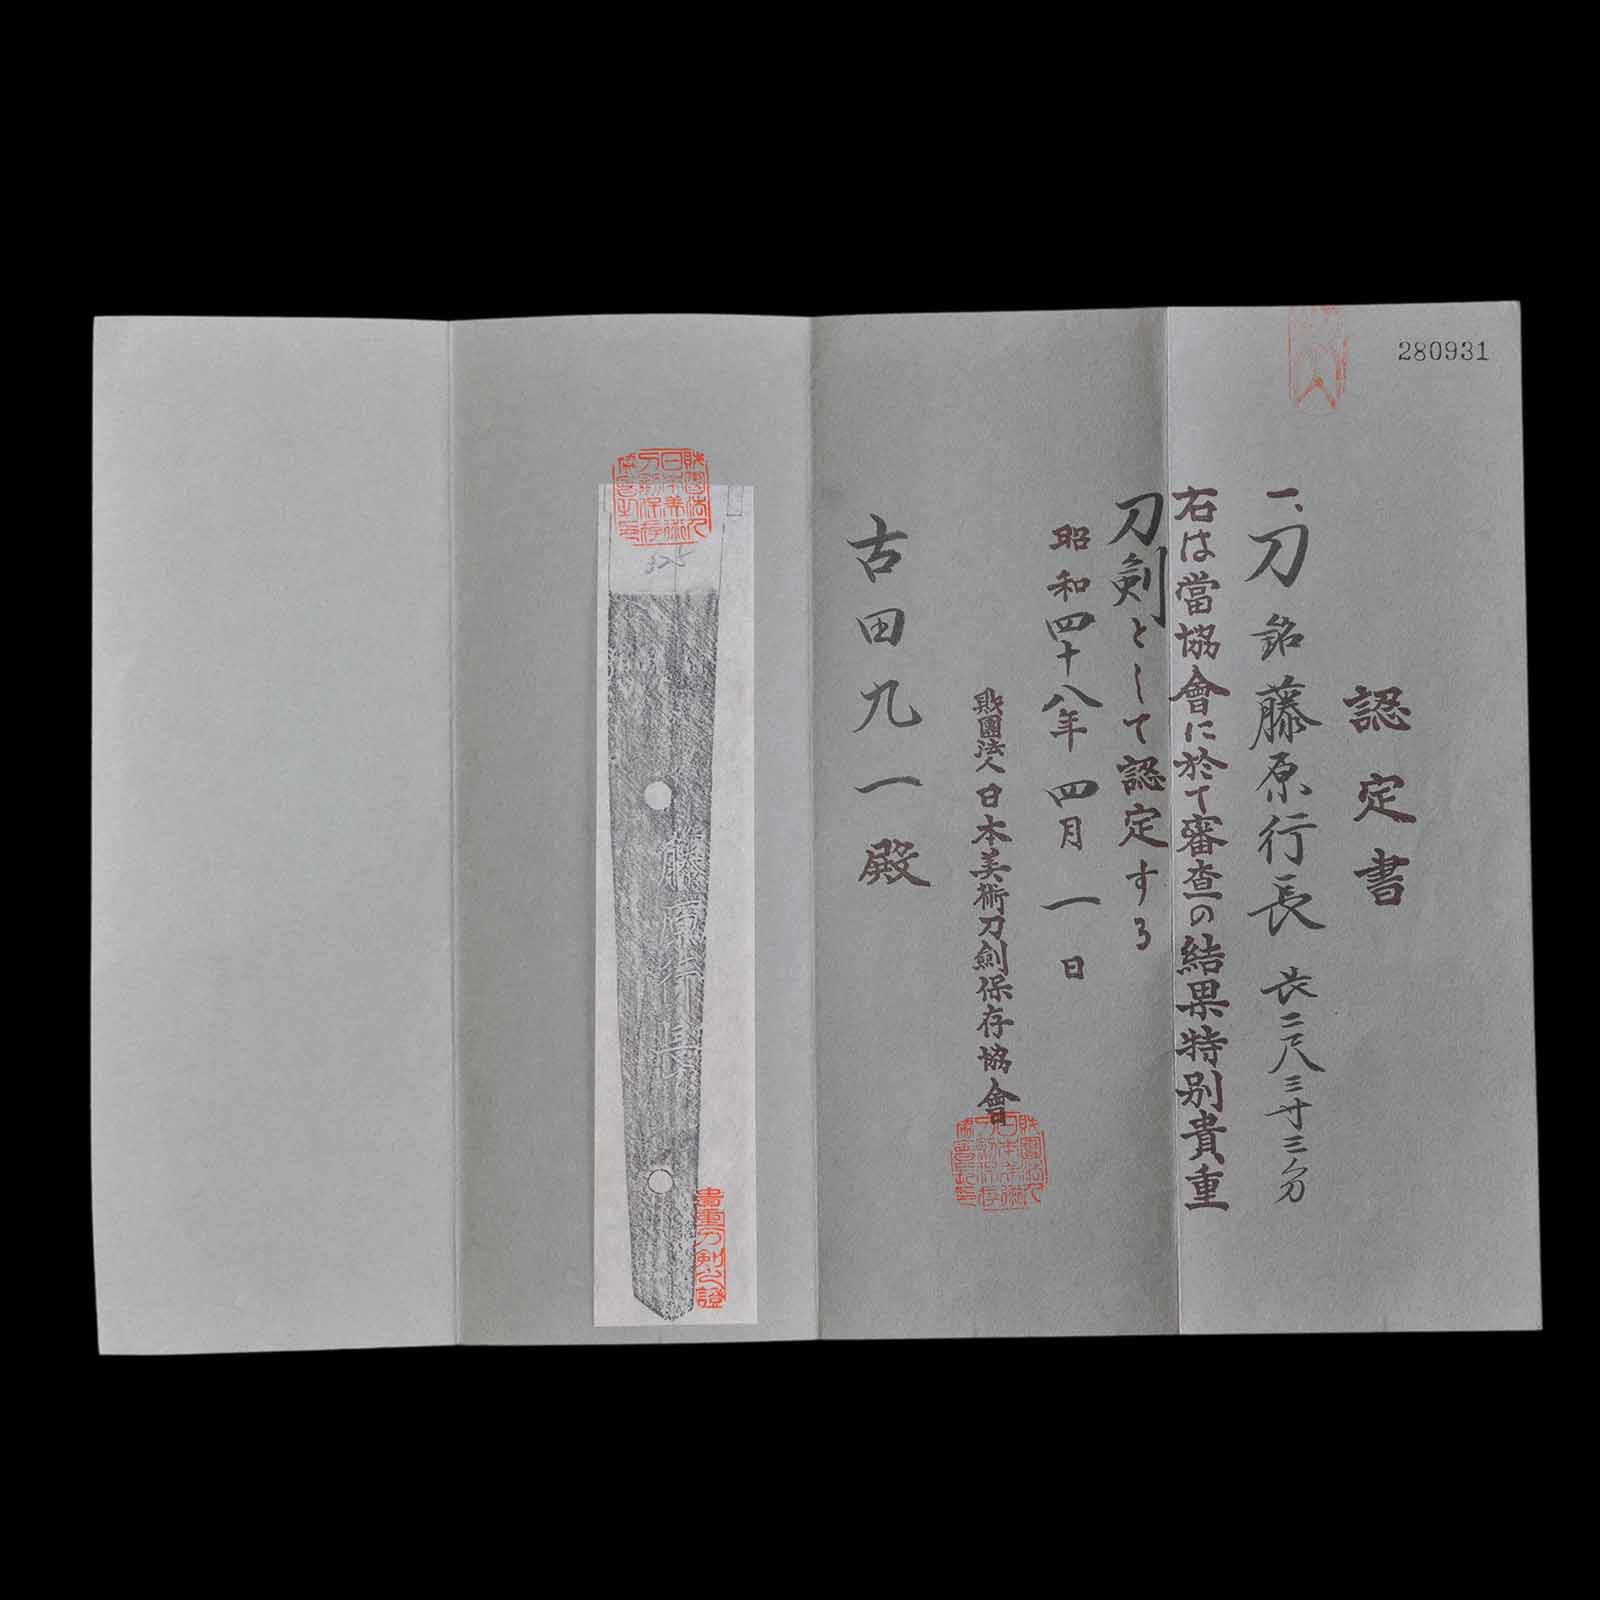 280931
認定書
一、刀 銘 藤原行長 長二尺三寸三分
右は當協會に於て審査の結果特別貴重
刀剣として認定する
昭和四十八年四月一日
財團法人日本美術刀劍保存協會
財團法人日本美術刀剣保存協會之印
古田九一殿
財團法人日本美術刀剣保存協會之印
藤原行長
貴重刀剣之證